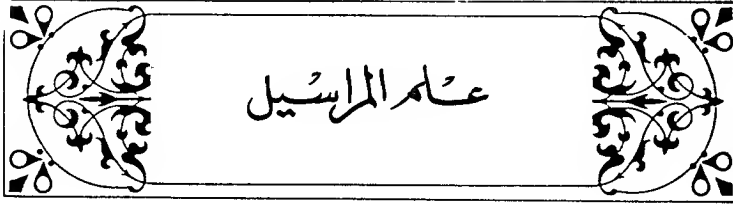 عِلم المراسْيل